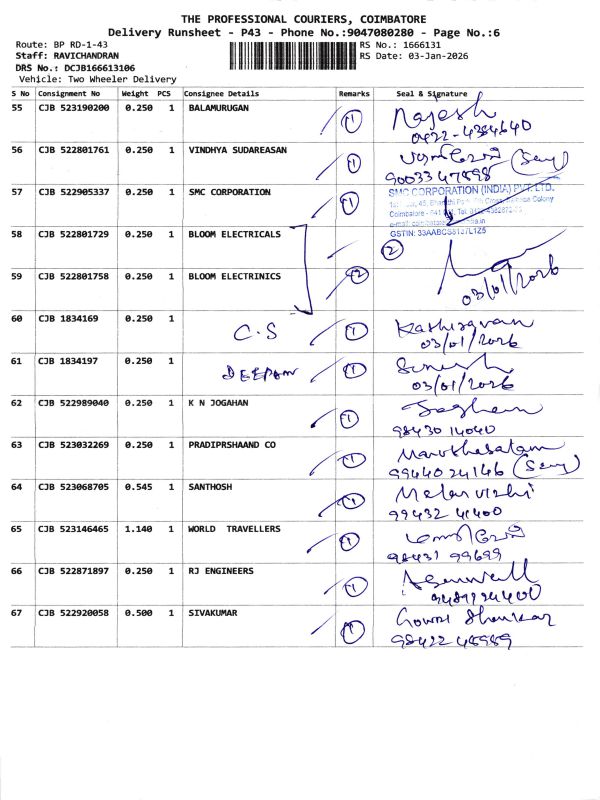 THE PROFESSIONAL COURIERS, COIMBATORE
Delivery Runsheet - P43 - Phone No.:9047080280 - Page No.:6
Route: BP RD-1-43
RS No.: 1666131
Staff: RAVICHANDRAN
RS Date: 03-Jan-2026
DRS No.: DCJB166613106
Vehicle: Two Wheeler Delivery
S No Consignment No Weight PCS Consignee Details Remarks Seal & Signature
55 CJB 523190200 0.250 1 BALAMURUGAN 1 Rajesh
0422-4384640
56 CJB 522801761 0.250 1 VINDHYA SUDAREASAN 1
90033 47898
57 CJB 522905337 0.250 1 SMC CORPORATION 1 SMC CORPORATION (INDIA) PVT. LTD.
Colony
Coimbatore - 641
GSTIN: 33AABCS8137L1Z5
58 CJB 522801729 0.250 1 BLOOM ELECTRICALS 2
59 CJB 522801758 0.250 1 BLOOM ELECTRINICS 2
03/01/2026
60 CJB 1834169 0.250 1 C.S 1 Kathiravan
03/01/2026
61 CJB 1834197 0.250 1 DEEPAM 1 Suresh
03/01/2026
62 CJB 522989040 0.250 1 K N JOGAHAN 1
98430 14040
63 CJB 523032269 0.250 1 PRADIPRSHAAND CO 1
99440 24146
64 CJB 523068705 0.545 1 SANTHOSH 1
99432 41400
65 CJB 523146465 1.140 1 WORLD TRAVELLERS 1
98431 99699
66 CJB 522871897 0.250 1 RJ ENGINEERS 1
67 CJB 522920058 0.500 1 SIVAKUMAR 1 Gowri Shankar
98422 48989